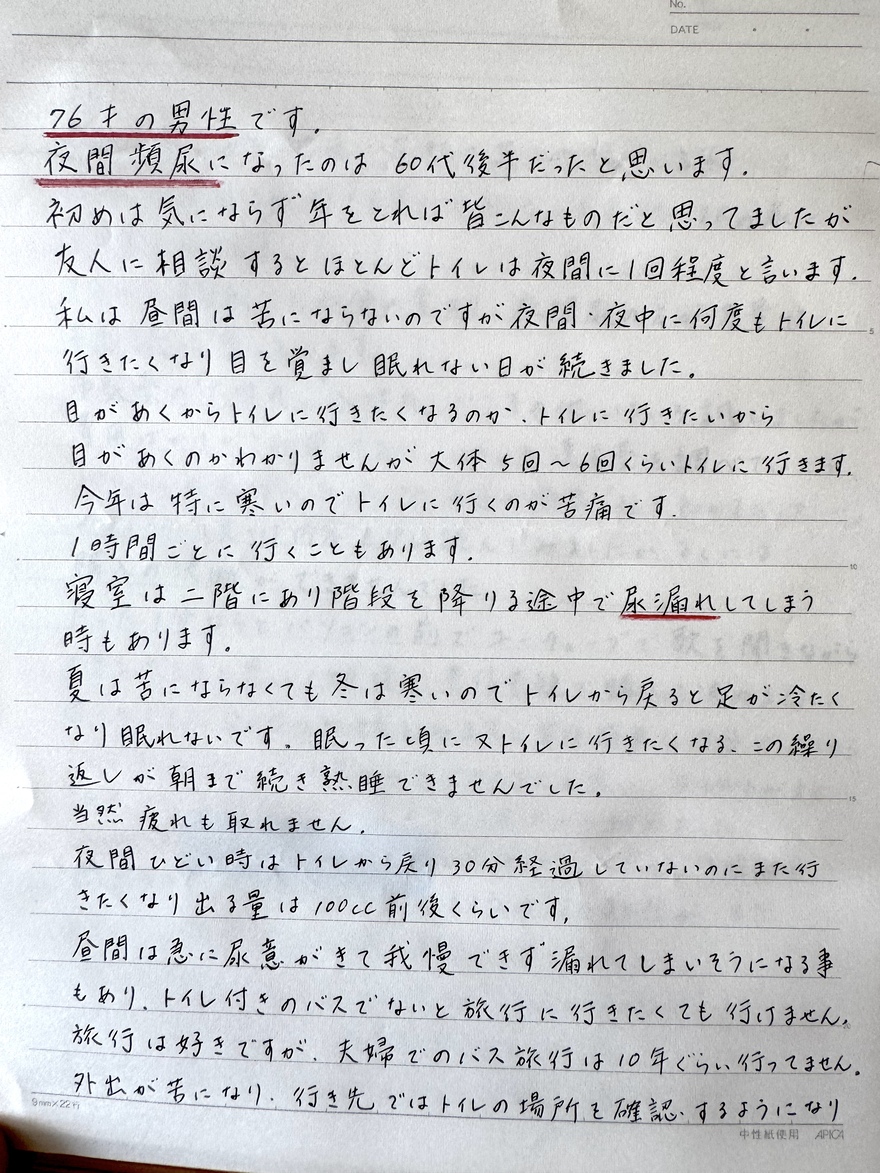 No.
DATE
76才の男性です.
夜間頻尿になったのは 60代後半だったと思います.
初めは気にならず年をとれば皆こんなものだと思ってましたが
友人に相談するとほとんどトイレは夜間に1回程度と言います.
私は昼間は苦にならないのですが夜間・夜中に何度もトイレに
5
行きたくなり目を覚まし眠れない日が続きました。
目があくからトイレに行きたくなるのか、トイレに行きたいから
目があくのかわかりませんが大体5回〜6回くらいトイレに行きます.
今年は特に寒いのでトイレに行くのが苦痛です.
1時間ごとに行くこともあります.
10
寝室は二階にあり階段を降りる途中で尿漏れしてしまう
時もあります。
夏は苦にならなくても冬は寒いのでトイレから戻ると足が冷たく
なり眠れないです。眠った頃に又トイレに行きたくなる、この繰り
返しが朝まで続き熟睡できませんでした。
15
当然疲れも取れません.
夜間ひどい時はトイレから戻り30分経過していないのにまた行
きたくなり出る量は100cc前後くらいです,
昼間は急に尿意がきて我慢できず漏れてしまいそうになる事
もあり、トイレ付きのバスでないと旅行に行きたくても行けません。
20
旅行は好きですが、夫婦でのバス旅行は10年ぐらい行ってません。
外出が苦になり、行き先ではトイレの場所を確認するようになり
9mm×22行
中性紙使用 APICA